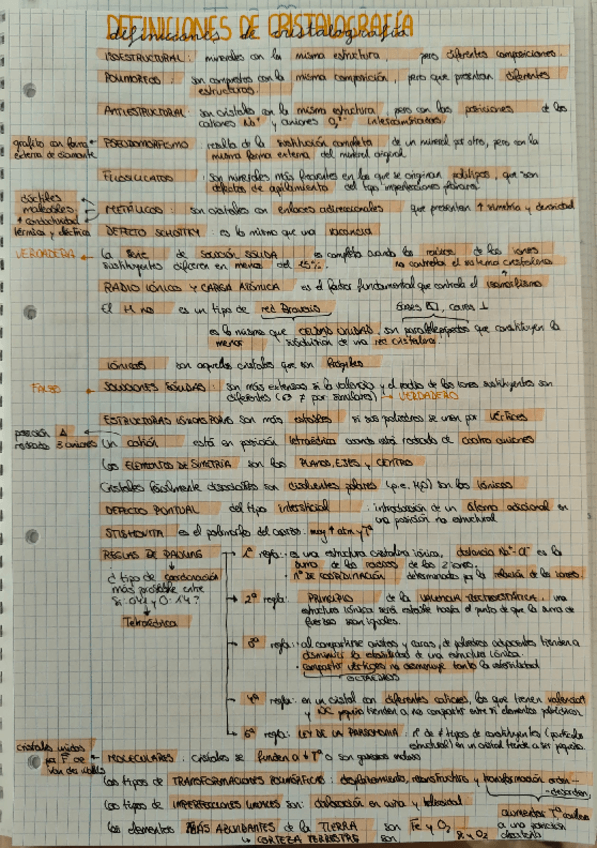 DEFINICIONES DE CRISTALOGRAFÍA
definiciones de cristalografía
ISOESTRUCTURAL: minerales con la misma estructura, pero diferentes composiciones.
POLIMORFOS: son compuestos con la misma composición, pero que presentan diferentes
estructuras.
ANTIESTRUCTURAL: son cristales con la misma estructura pero con las posiciones de los
cationes y aniones intercambiadas
grafito con forma
externa de diamante
PSEUDOMORFISMO: resulta de la sustitución completa de un mineral por otro, pero con la
misma forma externa del mineral original.
FILOSILICATOS: son minerales más frecuentes en los que se originan politipos, que son
defectos de apilamiento del tipo imperfecciones planares
dúctiles
maleables
↑ conductividad
térmica y eléctrica
METÁLICOS: son cristales con enlaces adireccionales que presentan ↑ simetría y densidad
DEFECTO SCHOTTKY: es lo mismo que una vacancia
VERDADERA ← La serie de solución sólida es completa cuando los radios de los iones
sustituyentes difieren en menos del 15%. no controla el sistema cristalino
RADIO IÓNICO Y CARGA ATÓMICA es el factor fundamental que controla el isomorfismo
El H no es un tipo de red Bravais
es lo mismo que CELDA UNIDAD, son paralelepípedos que constituyen la
menor subdivisión de una red cristalina.
IÓNICOS son aquellos cristales que son frágiles
FALSO ← SOLUCIONES SÓLIDAS: son más extensas si la valencia y el radio de los iones sustituyentes son
diferentes (es ≠ por similares) → VERDADERO
ESTRUCTURAS IÓNICAS son más estables si sus poliedros se unen por vértices
posición Δ
rodeados 3 aniones
Un catión está en posición tetraédrica cuando está rodeado de cuatro aniones
Los ELEMENTOS DE SIMETRÍA son los PLANOS, EJES y CENTRO
Cristales fácilmente disociables son disolventes polares (p.e. H₂O) son los iónicos
DEFECTO PUNTUAL del tipo intersticial: introducción de un átomo adicional en
una posición no estructural
STISHOVITA es el polimorfo del cuarzo. muy ↑ atm y Tª
REGLAS DE PAULING → 1ª regla: es una estructura cristalina iónica, distancia es la
suma de los radios de los 2 iones.
· nº DE COORDINACIÓN determinados por la relación de los iones.
¿ tipo de coordinación
más probable entre
Si: 0'42 y O: 1'4?
Tetraédrica
→ 2ª regla: PRINCIPIO de la VALENCIA ELECTROSTÁTICA, una
estructura iónica será estable hasta el punto de que la suma de
fuerzas sean iguales.
→ 3ª regla: al compartirse aristas y caras, de poliedros adyacentes tienden a
disminuir la estabilidad de una estructura iónica.
· compartir vértices no disminuye tanto la estabilidad
→ 4ª regla: en un cristal con diferentes cationes, los que tienen valencia↑
y NC pequeño tienden a no compartir entre sí elementos poliédricos.
→ 5ª regla: LEY DE LA PARSIMONIA: nº de ≠ tipos de constituyentes (partículas
estructurales) en un cristal tiende a ser pequeño.
cristales unidos
por F de
Van der Walls
MOLECULARES: cristales se funden a ↓ Tª o son gaseosos
Los tipos de TRANSFORMACIONES POLIMÓRFICAS: desplazamiento, reconstructiva y transformación orden-
-desorden,
Los tipos de IMPERFECCIONES LINEALES son: dislocación en cuña y helicoidal
Los elementos MÁS ABUNDANTES de la TIERRA son Fe y O₂
↳ CORTEZA TERRESTRE son Si y O₂
aumentar Tª
a una posición